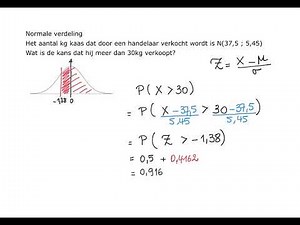 Normale verdeling
Het aantal kg kaas dat door een handelaar verkocht wordt is N(37,5 ; 5,45)
Wat is de kans dat hij meer dan 30kg verkoopt?
Z = X - μ / σ
P(X > 30)
= P( X - 37,5 / 5,45 > 30 - 37,5 / 5,45 )
= P( Z > -1,38 )
= 0,5 + 0,4162
= 0,916
-1,38 0